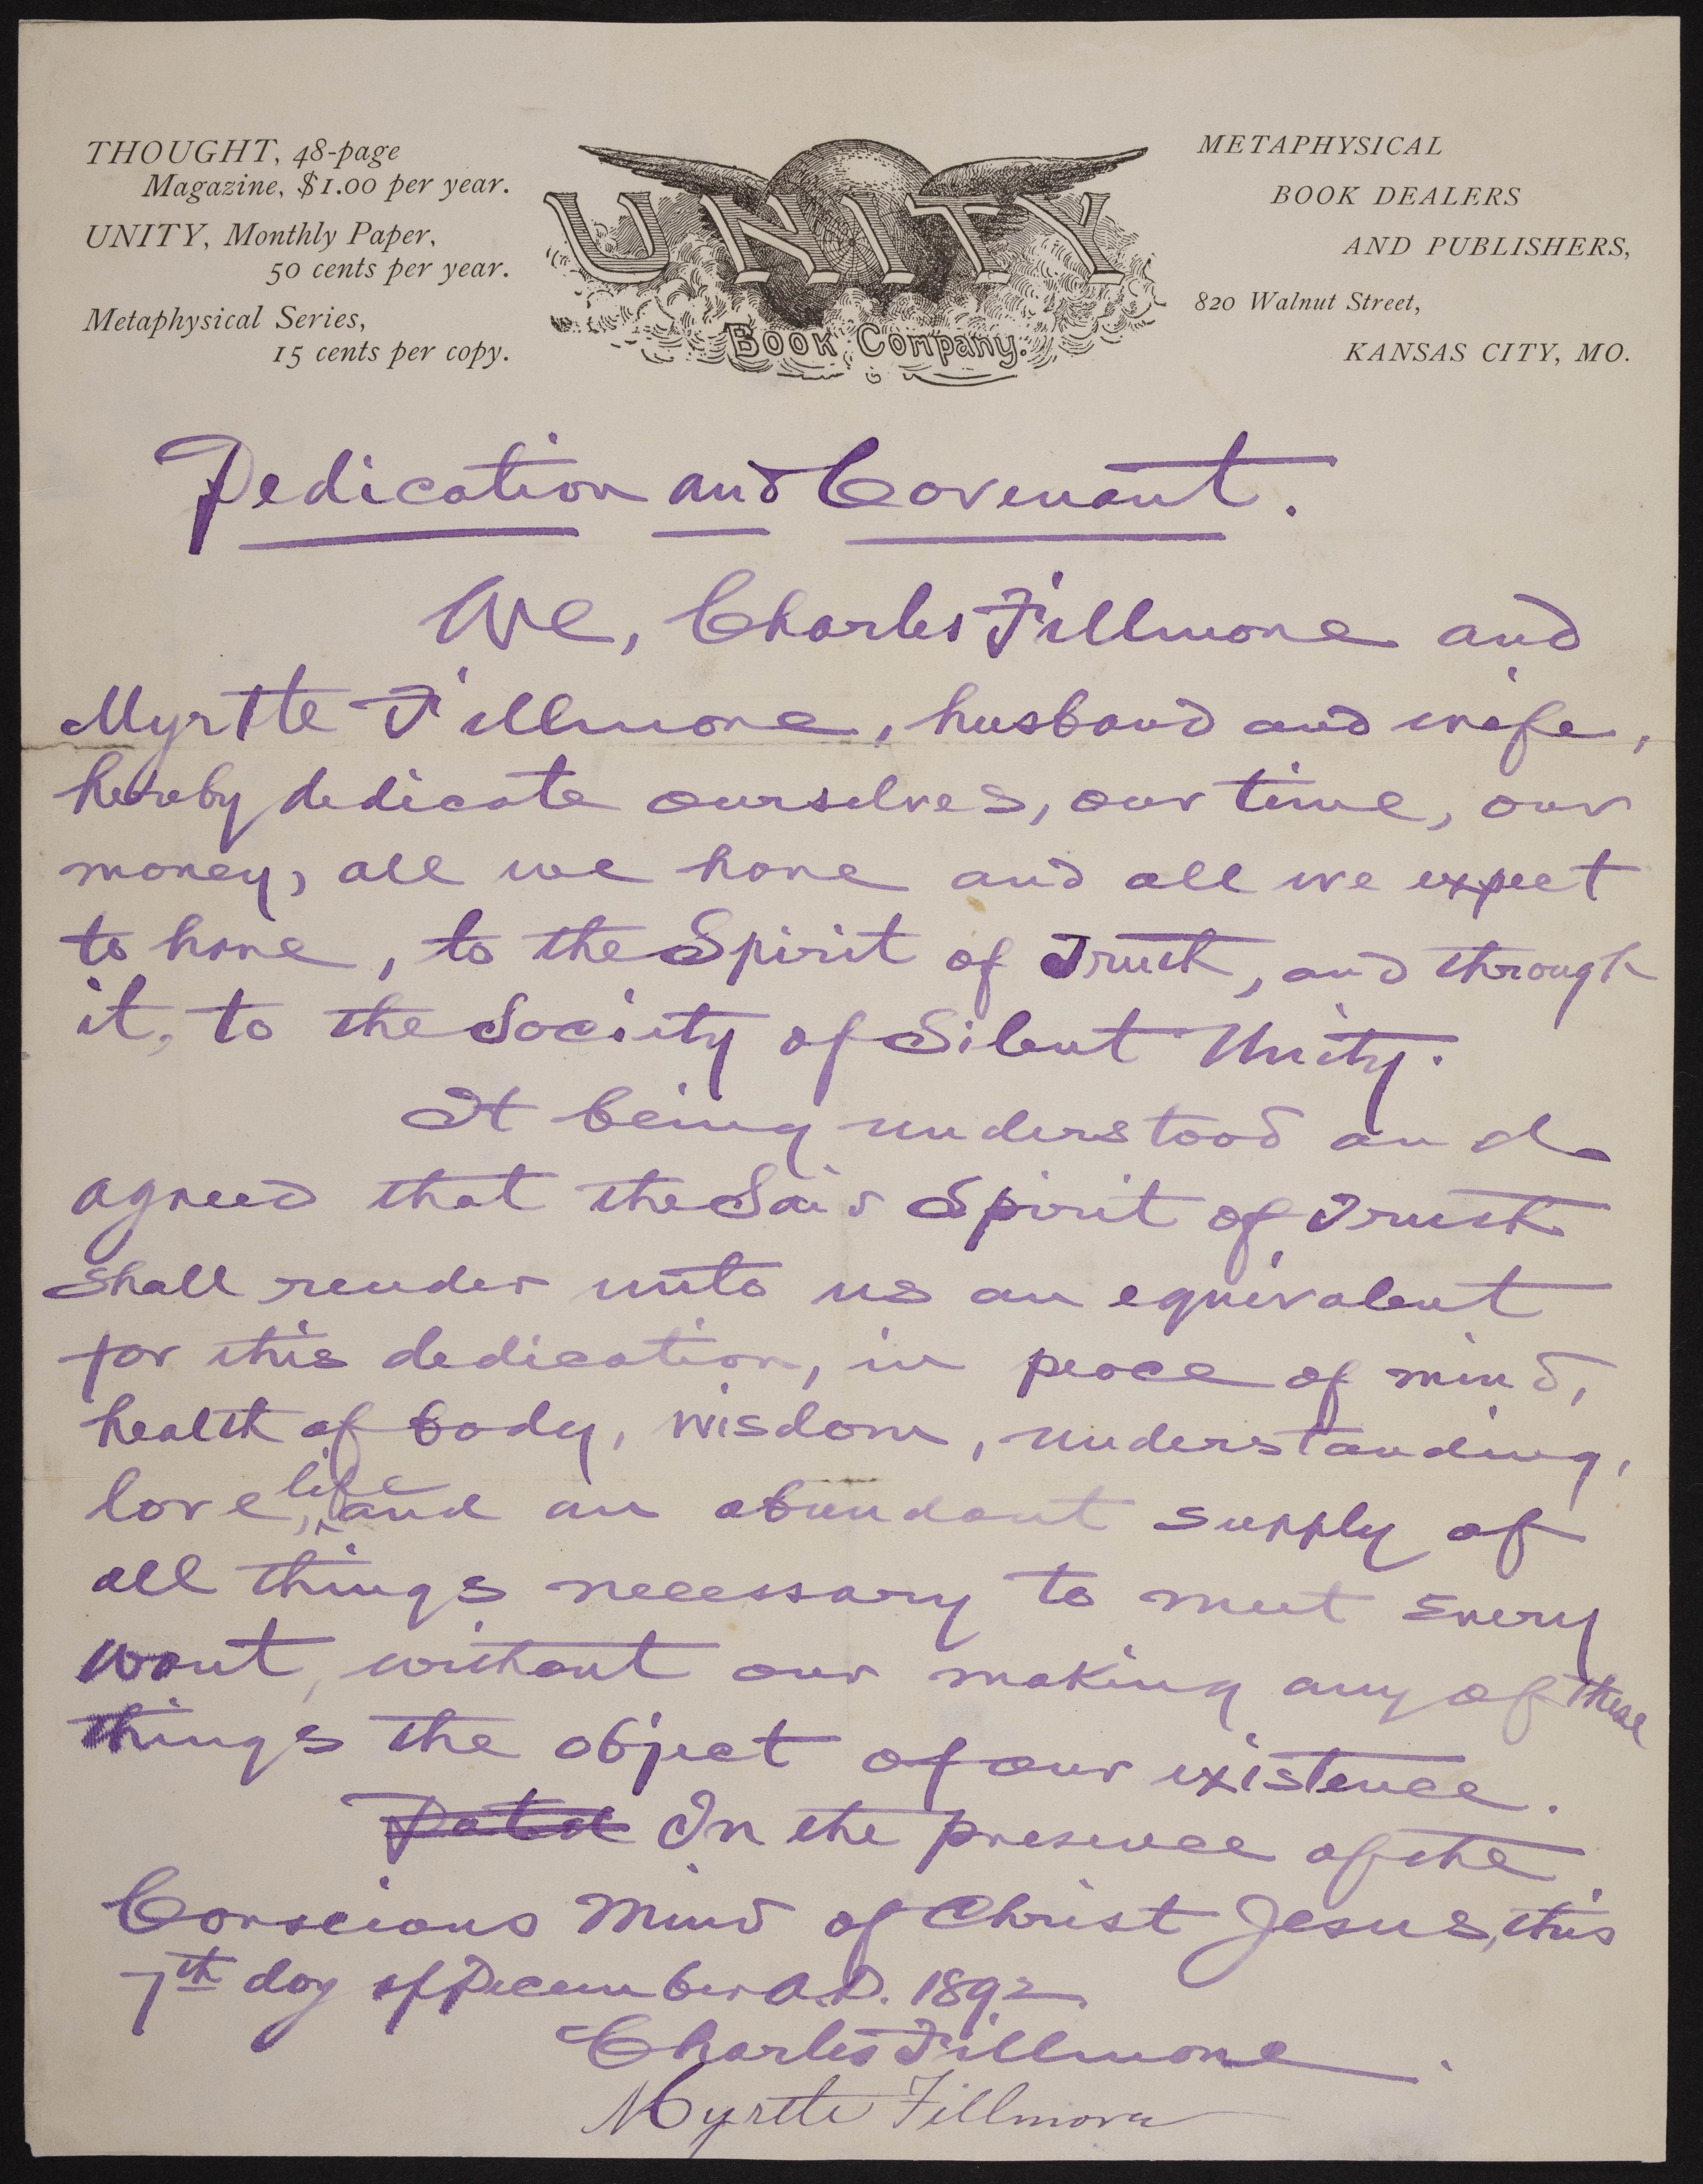 THOUGHT, 48-page
Magazine, $1.00 per year.
UNITY, Monthly Paper,
50 cents per year.
Metaphysical Series,
15 cents per copy.
UNITY
Book Company.
METAPHYSICAL
BOOK DEALERS
AND PUBLISHERS,
820 Walnut Street,
KANSAS CITY, MO.
Dedication and Covenant.
We, Charles Fillmore and
Myrtle Fillmore, husband and wife,
hereby dedicate ourselves, our time, our
money, all we have and all we expect
to have, to the Spirit of Truth, and through
it, to the Society of Silent Unity.
It being understood and
agreed that the Said Spirit of Truth
shall render unto us an equivalent
for this dedication, in peace of mind,
health of body, wisdom, understanding,
love, life and an abundant supply of
all things necessary to meet every
want, without our making any of these
things the object of our existence.
Dated In the presence of the
Conscious Mind of Christ Jesus, this
7th day of December A.D. 1892
Charles Fillmore.
Myrtle Fillmore